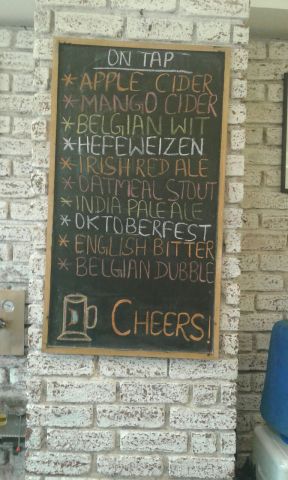 ON TAP
* APPLE CIDER
* MANGO CIDER
* BELGIAN WIT
* HEFEWEIZEN
* IRISH RED ALE
* OATMEAL STOUT
* INDIA PALE ALE
* OKTOBERFEST
* ENGLISH BITTER
* BELGIAN DUBBLE
CHEERS!